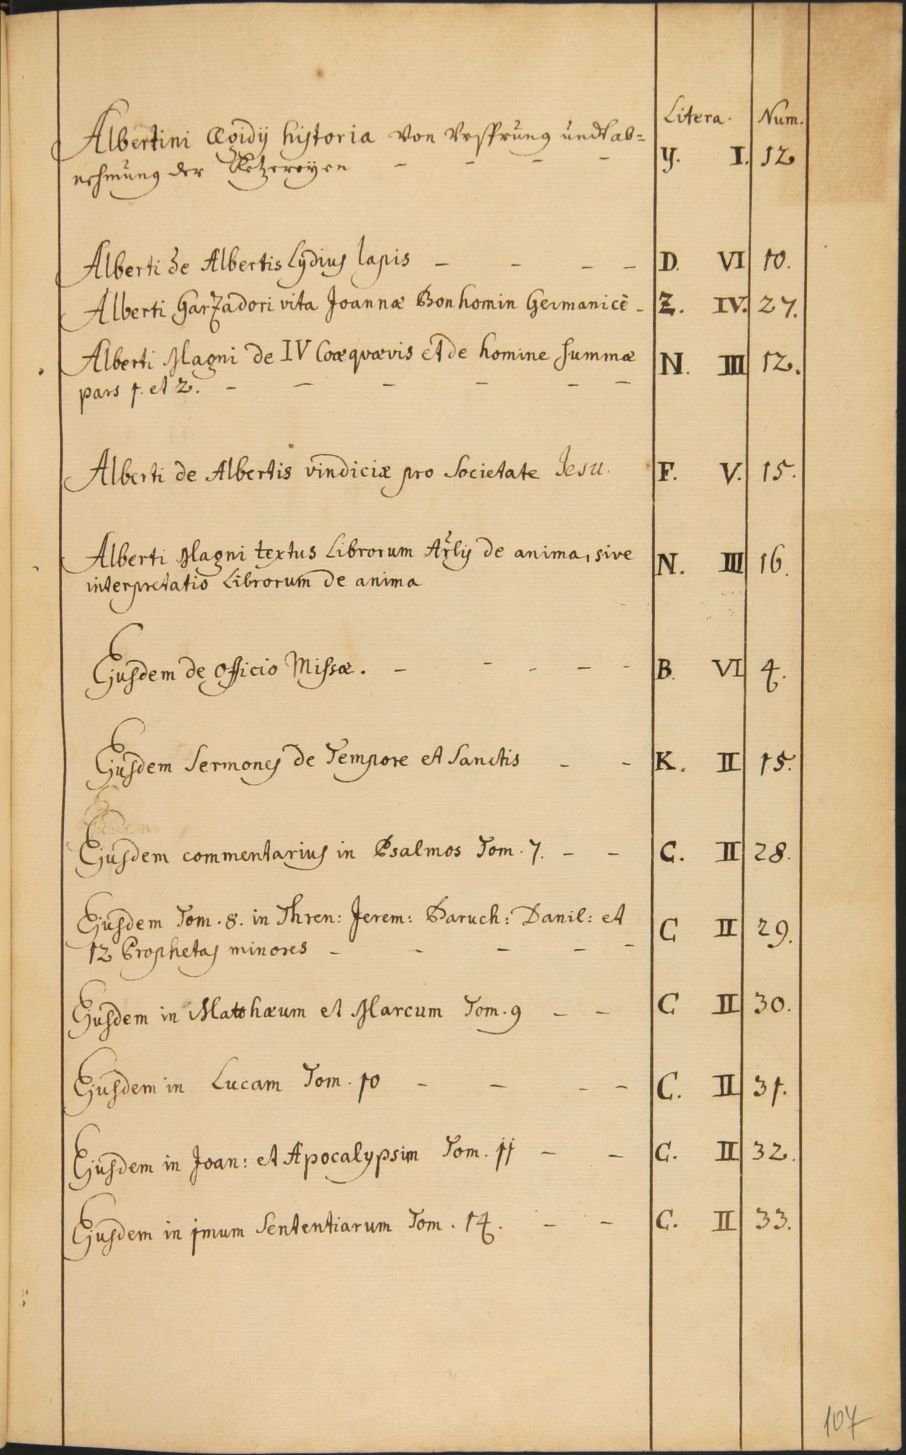 Litera. Num.
Albertini Ægidij historia von Vrsprung undt ab=
nehmung der Ketzereyen - - - - Y. I. 12
Alberti de Albertis Lydius lapis - - - - D. VI 10.
Alberti Garzadori vita Joannæ Bonhomin Germanicè - Z. IV. 27.
Alberti Magni de IV Coæquævis et de homine summæ
pars 1. et 2. - - - - - - N. III 12.
Alberti de Albertis vindiciæ pro Societate Jesu. F. V. 15.
Alberti Magni textus Librorum Arlis de anima, sive
interpretatio Librorum de anima N. III 16.
Ejusdem de officio Missæ. - - - - - B. VI 4.
Ejusdem Sermones de Tempore et Sanctis - - K. II 15.
Ejusdem commentarius in Psalmos Tom. 7. - - C. II 28.
Ejusdem Tom. 8. in Thren: Jerem: Baruch: Danil: et
12 Prophetas minores - - - - - C II 29.
Ejusdem in Matthæum et Marcum Tom. 9 - - C II 30.
Ejusdem in Lucam Tom. 10 - - - - C. II 31.
Ejusdem in Joan: et Apocalypsim Tom. 11 - - C. II 32.
Ejusdem in 1mum Sententiarum Tom. 14. - - C. II 33.
107